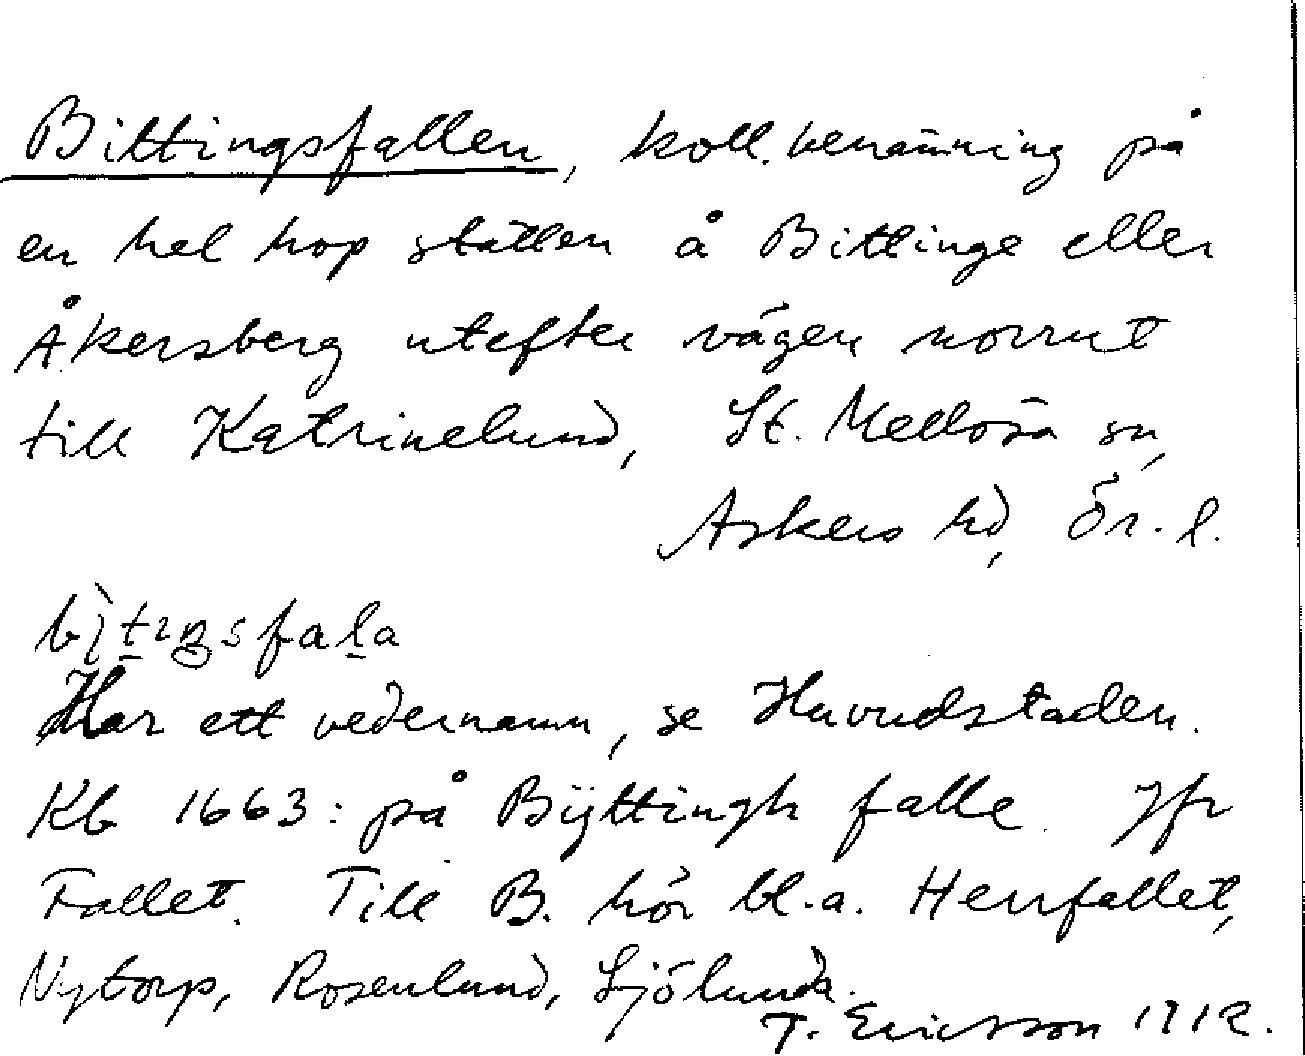 Bittingsfallen, koll. benämning på
en hel hop ställen å Bittinge eller
Åkersberg utefter vägen norrut
till Katrinelund, St. Mellösa sn,
Askers hd, Ör. l.
bìtiŋsfaḻa
Har ett vedernamn, se Huvudstaden.
Kb 1663: på Bÿttingh falle. Jfr
Fallet. Till B. hör bl.a. Herrfallet,
Nytorp, Rosenlund, Sjölunda.
T. Ericsson 1912.